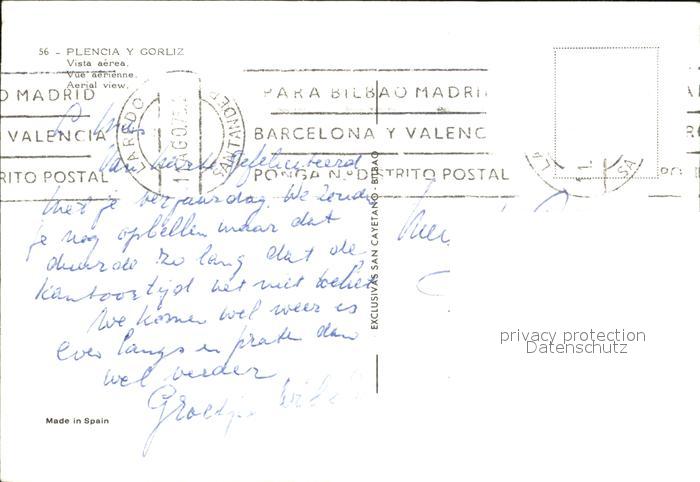 56 - PLENCIA Y GORLIZ
Vista aérea.
Vue aérienne.
Aerial view.
O MADRID
VALENCIA
TRITO POSTAL
LAREDO
SANTANDER
PARA BILBAO MADRI
BARCELONA Y VALENC
PONGA N.º DISTRITO POSTAL
LA
SA
Van harte gefeliciteerd
met je verjaardag. We zouden
je nog opbellen maar dat
duurde zo lang dat de
kantoortijd het niet toeliet
We komen wel weer es
even langs en praten dan
wel verder
Groetjes
EXCLUSIVAS SAN CAYETANO - BILBAO
privacy protection
Datenschutz
Made in Spain